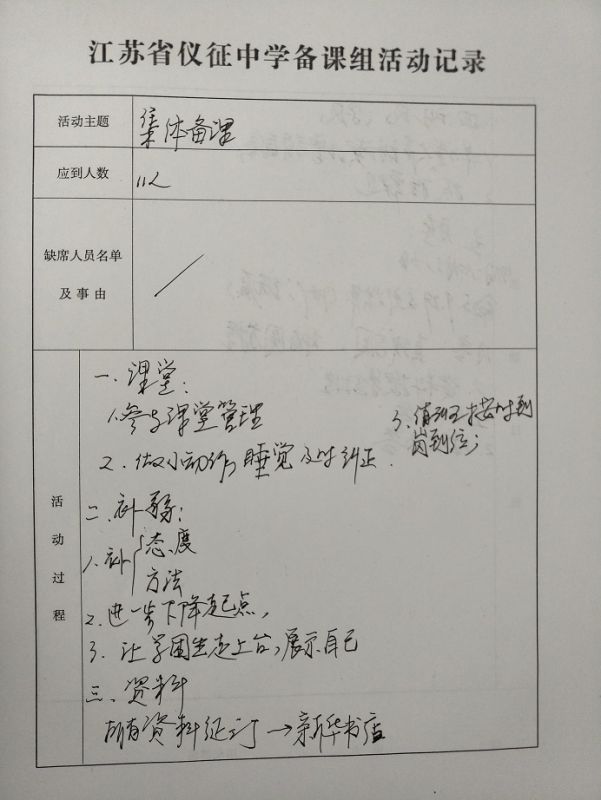 江苏省仪征中学备课组活动记录
活动主题 集体备课
应到人数 11人
缺席人员名单
及事由
活动过程
一.课堂:
1.参与课堂管理
2.做小动作,睡觉及时纠正.
3、值班按时到
岗到位;
二.补弱:
1.补{态度
方法
2.进一步下降起点,
3.让学困生走上台,展示自己
三.资料
所有资料征订→新华书店